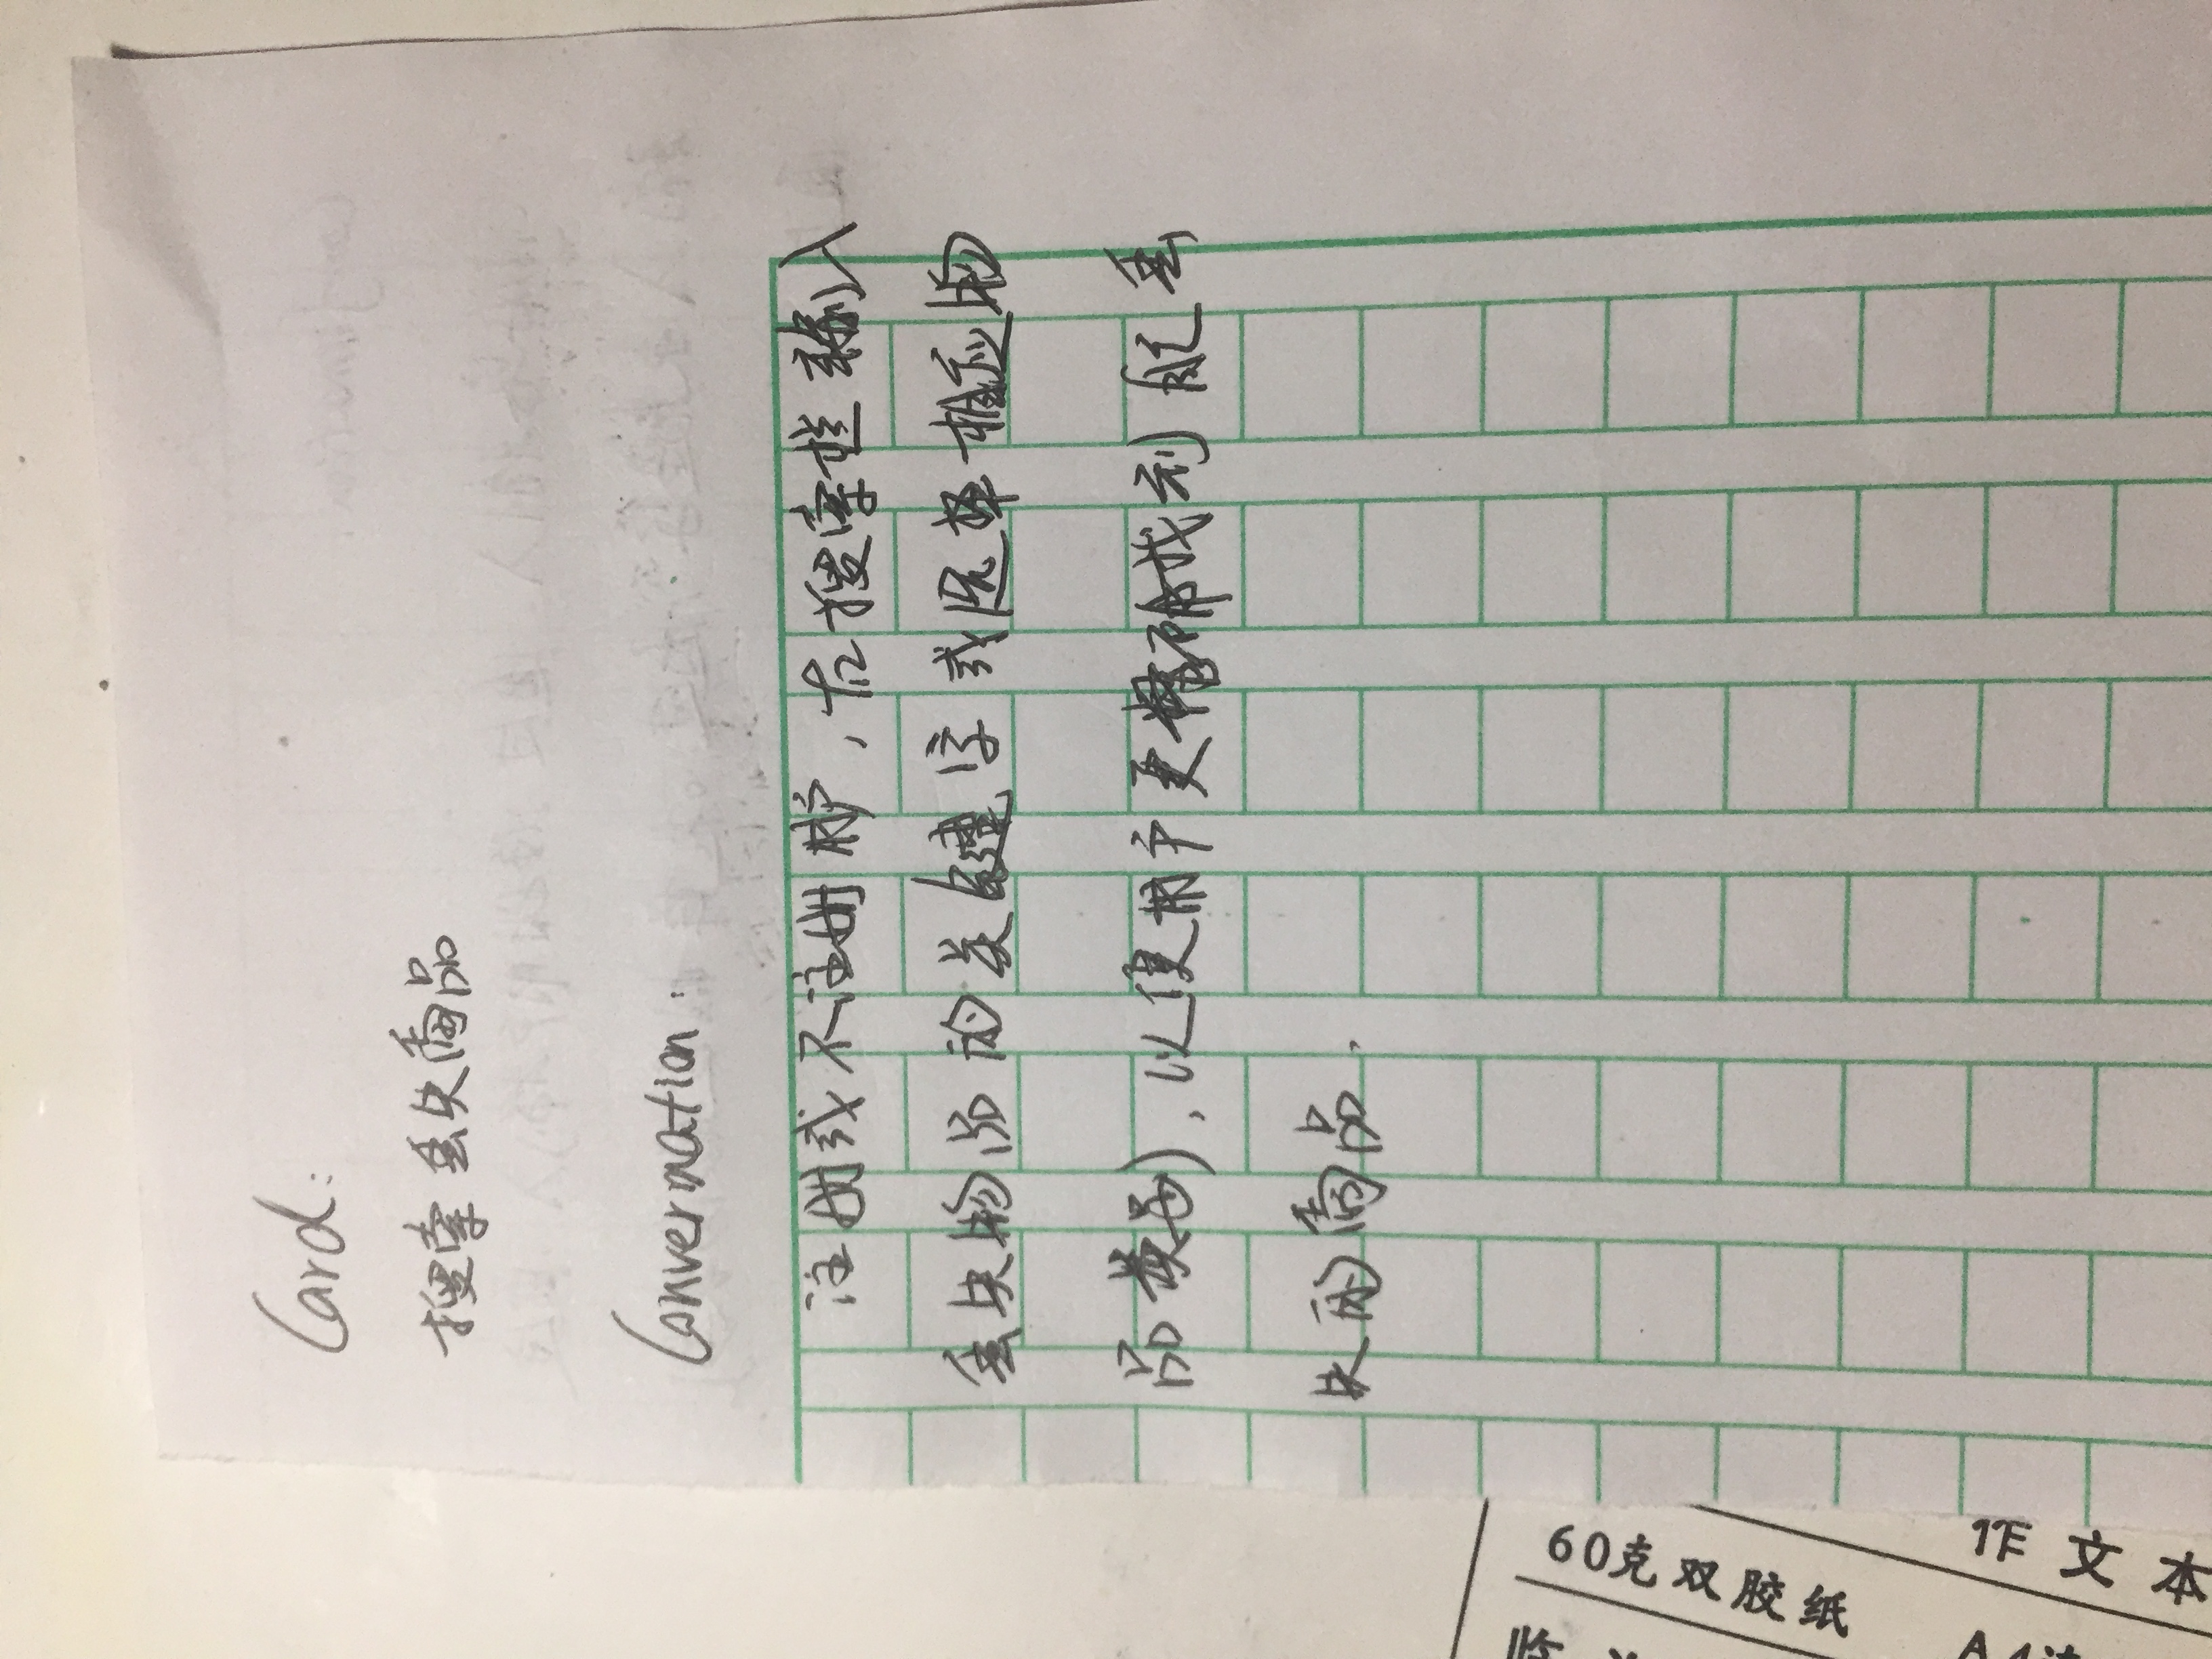 Card:
搜索丢失商品
Convernation:
注册或不注册用户,在搜索栏输入
丢失物品的关键字或选择相应物
品类别,以便用户更精确找到自己丢
失的商品.
60克双胶纸
作文本